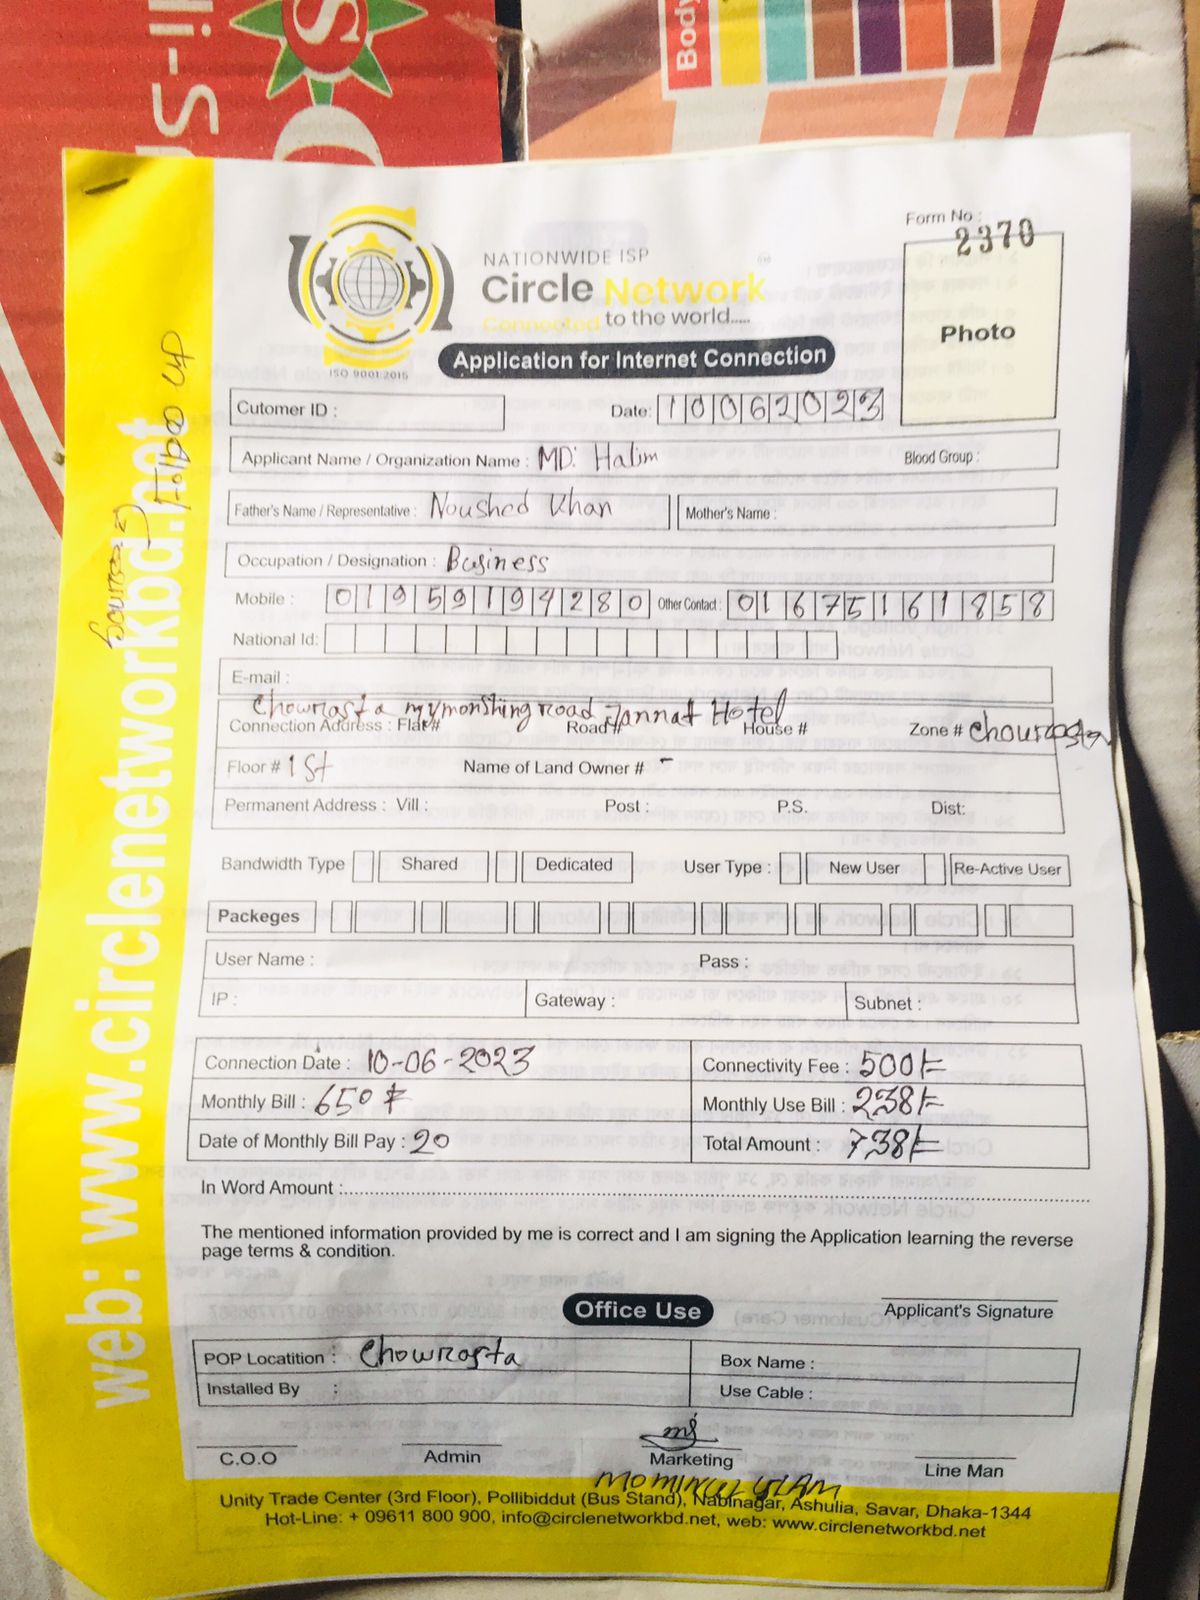 Body
S
Form No :
2370
NATIONWIDE ISP
Circle Network
Connected to the world.....
ISO 9001:2015
Application for Internet Connection
Photo
Cutomer ID :
Date: 10062023
Applicant Name / Organization Name : MD: Halim
Blood Group :
Father's Name / Representative : Noushed Khan
Mother's Name :
Occupation / Designation : Business
Mobile : 01959194280 Other Contact : 01675161858
National Id:
E-mail :
Chowrasta mymonshing road Jannat Hotel
Connection Address : Flat# Road # House # Zone # chourasta
Floor # 1st Name of Land Owner # -
Permanent Address : Vill : Post : P.S. Dist:
Bandwidth Type Shared Dedicated User Type : New User Re-Active User
Packeges
User Name : Pass :
IP : Gateway : Subnet :
Connection Date : 10-06-2023 Connectivity Fee : 500/=
Monthly Bill : 650 Monthly Use Bill : 238/=
Date of Monthly Bill Pay : 20 Total Amount : 738/=
In Word Amount :
The mentioned information provided by me is correct and I am signing the Application learning the reverse
page terms & condition.
Applicant's Signature
Office Use
POP Locatition : Chowrasta Box Name :
Installed By : Use Cable :
C.O.O Admin Marketing Line Man
Unity Trade Center (3rd Floor), Pollibiddut (Bus Stand), Nabinagar, Ashulia, Savar, Dhaka-1344
Hot-Line: + 09611 800 900, info@circlenetworkbd.net, web: www.circlenetworkbd.net
web: www.circlenetworkbd.net